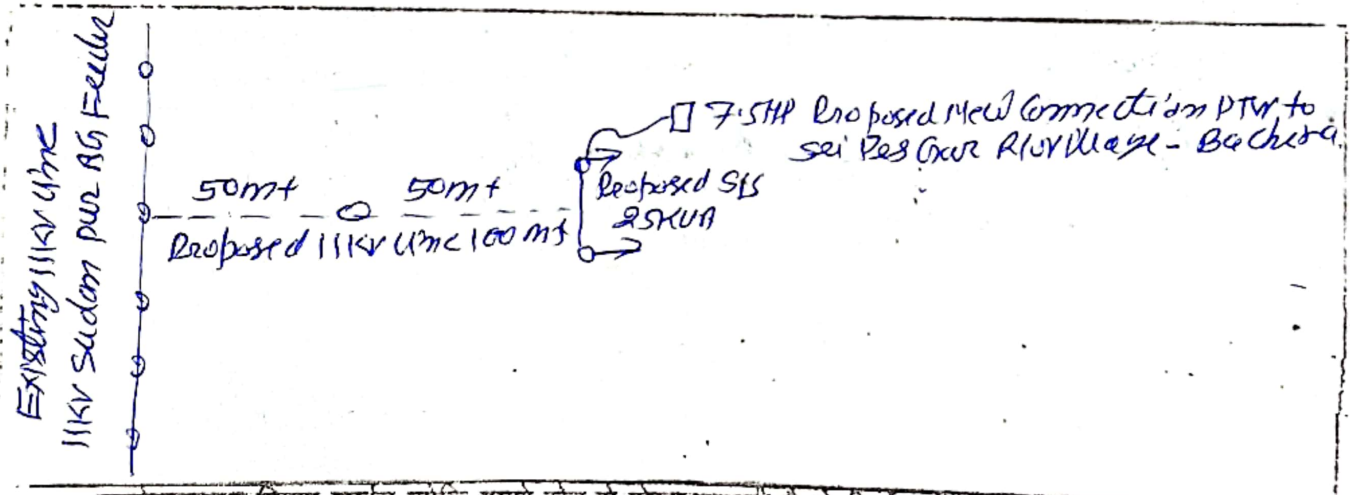 Existing 11KV Line
11KV Sudam pur AG Feeder
50mt 50mt
Proposed 11KV Line 100 mt
Proposed S/S
25KVA
7.5HP Proposed New Connection PTW to
R/o Village - Bachera